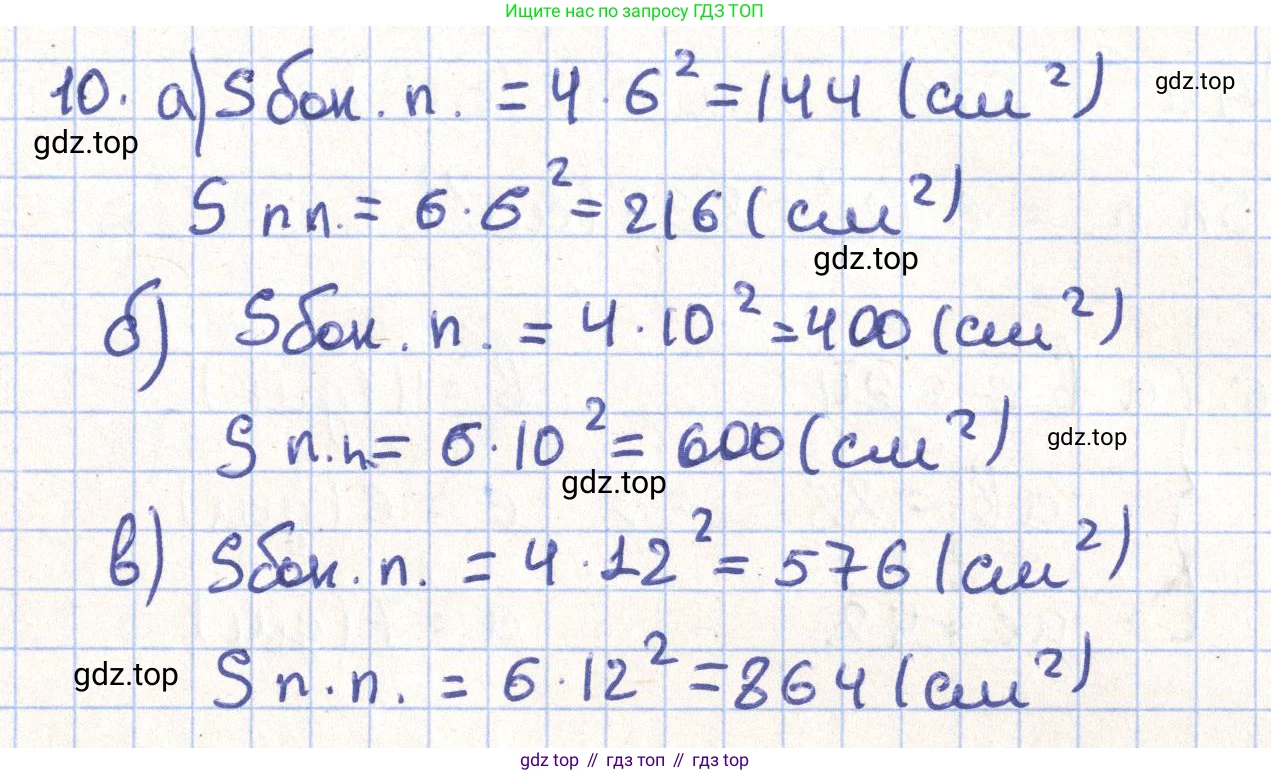 Ищите нас по запросу ГДЗ ТОП
10. а) Sбок. п. = 4 · 6² = 144 (см²) gdz.top
gdz.top
S пп. = 6 · 6² = 216 (см²)
gdz.top
б) Sбок. п. = 4 · 10² = 400 (см²)
S п.п = 6 · 10² = 600 (см²) gdz.top
gdz.top
в) Sбок. п. = 4 · 12² = 576 (см²)
gdz.top S п. п. = 6 · 12² = 864 (см²)
gdz top // гдз топ // гдз top